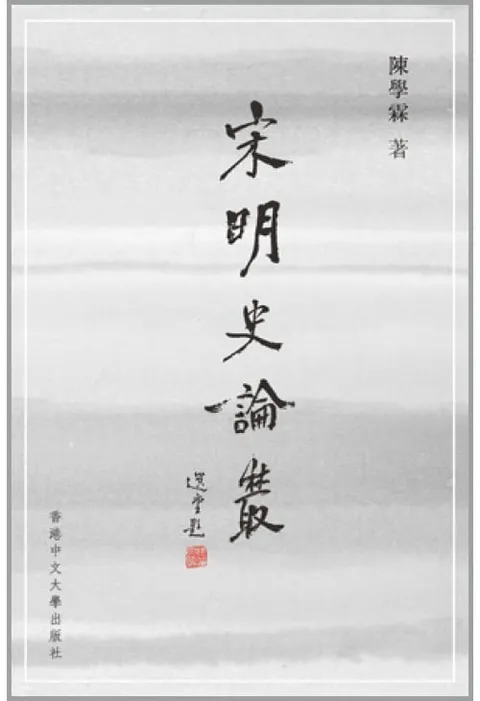 陳學霖 著
宋明史論叢
選堂題
香港中文大學出版社